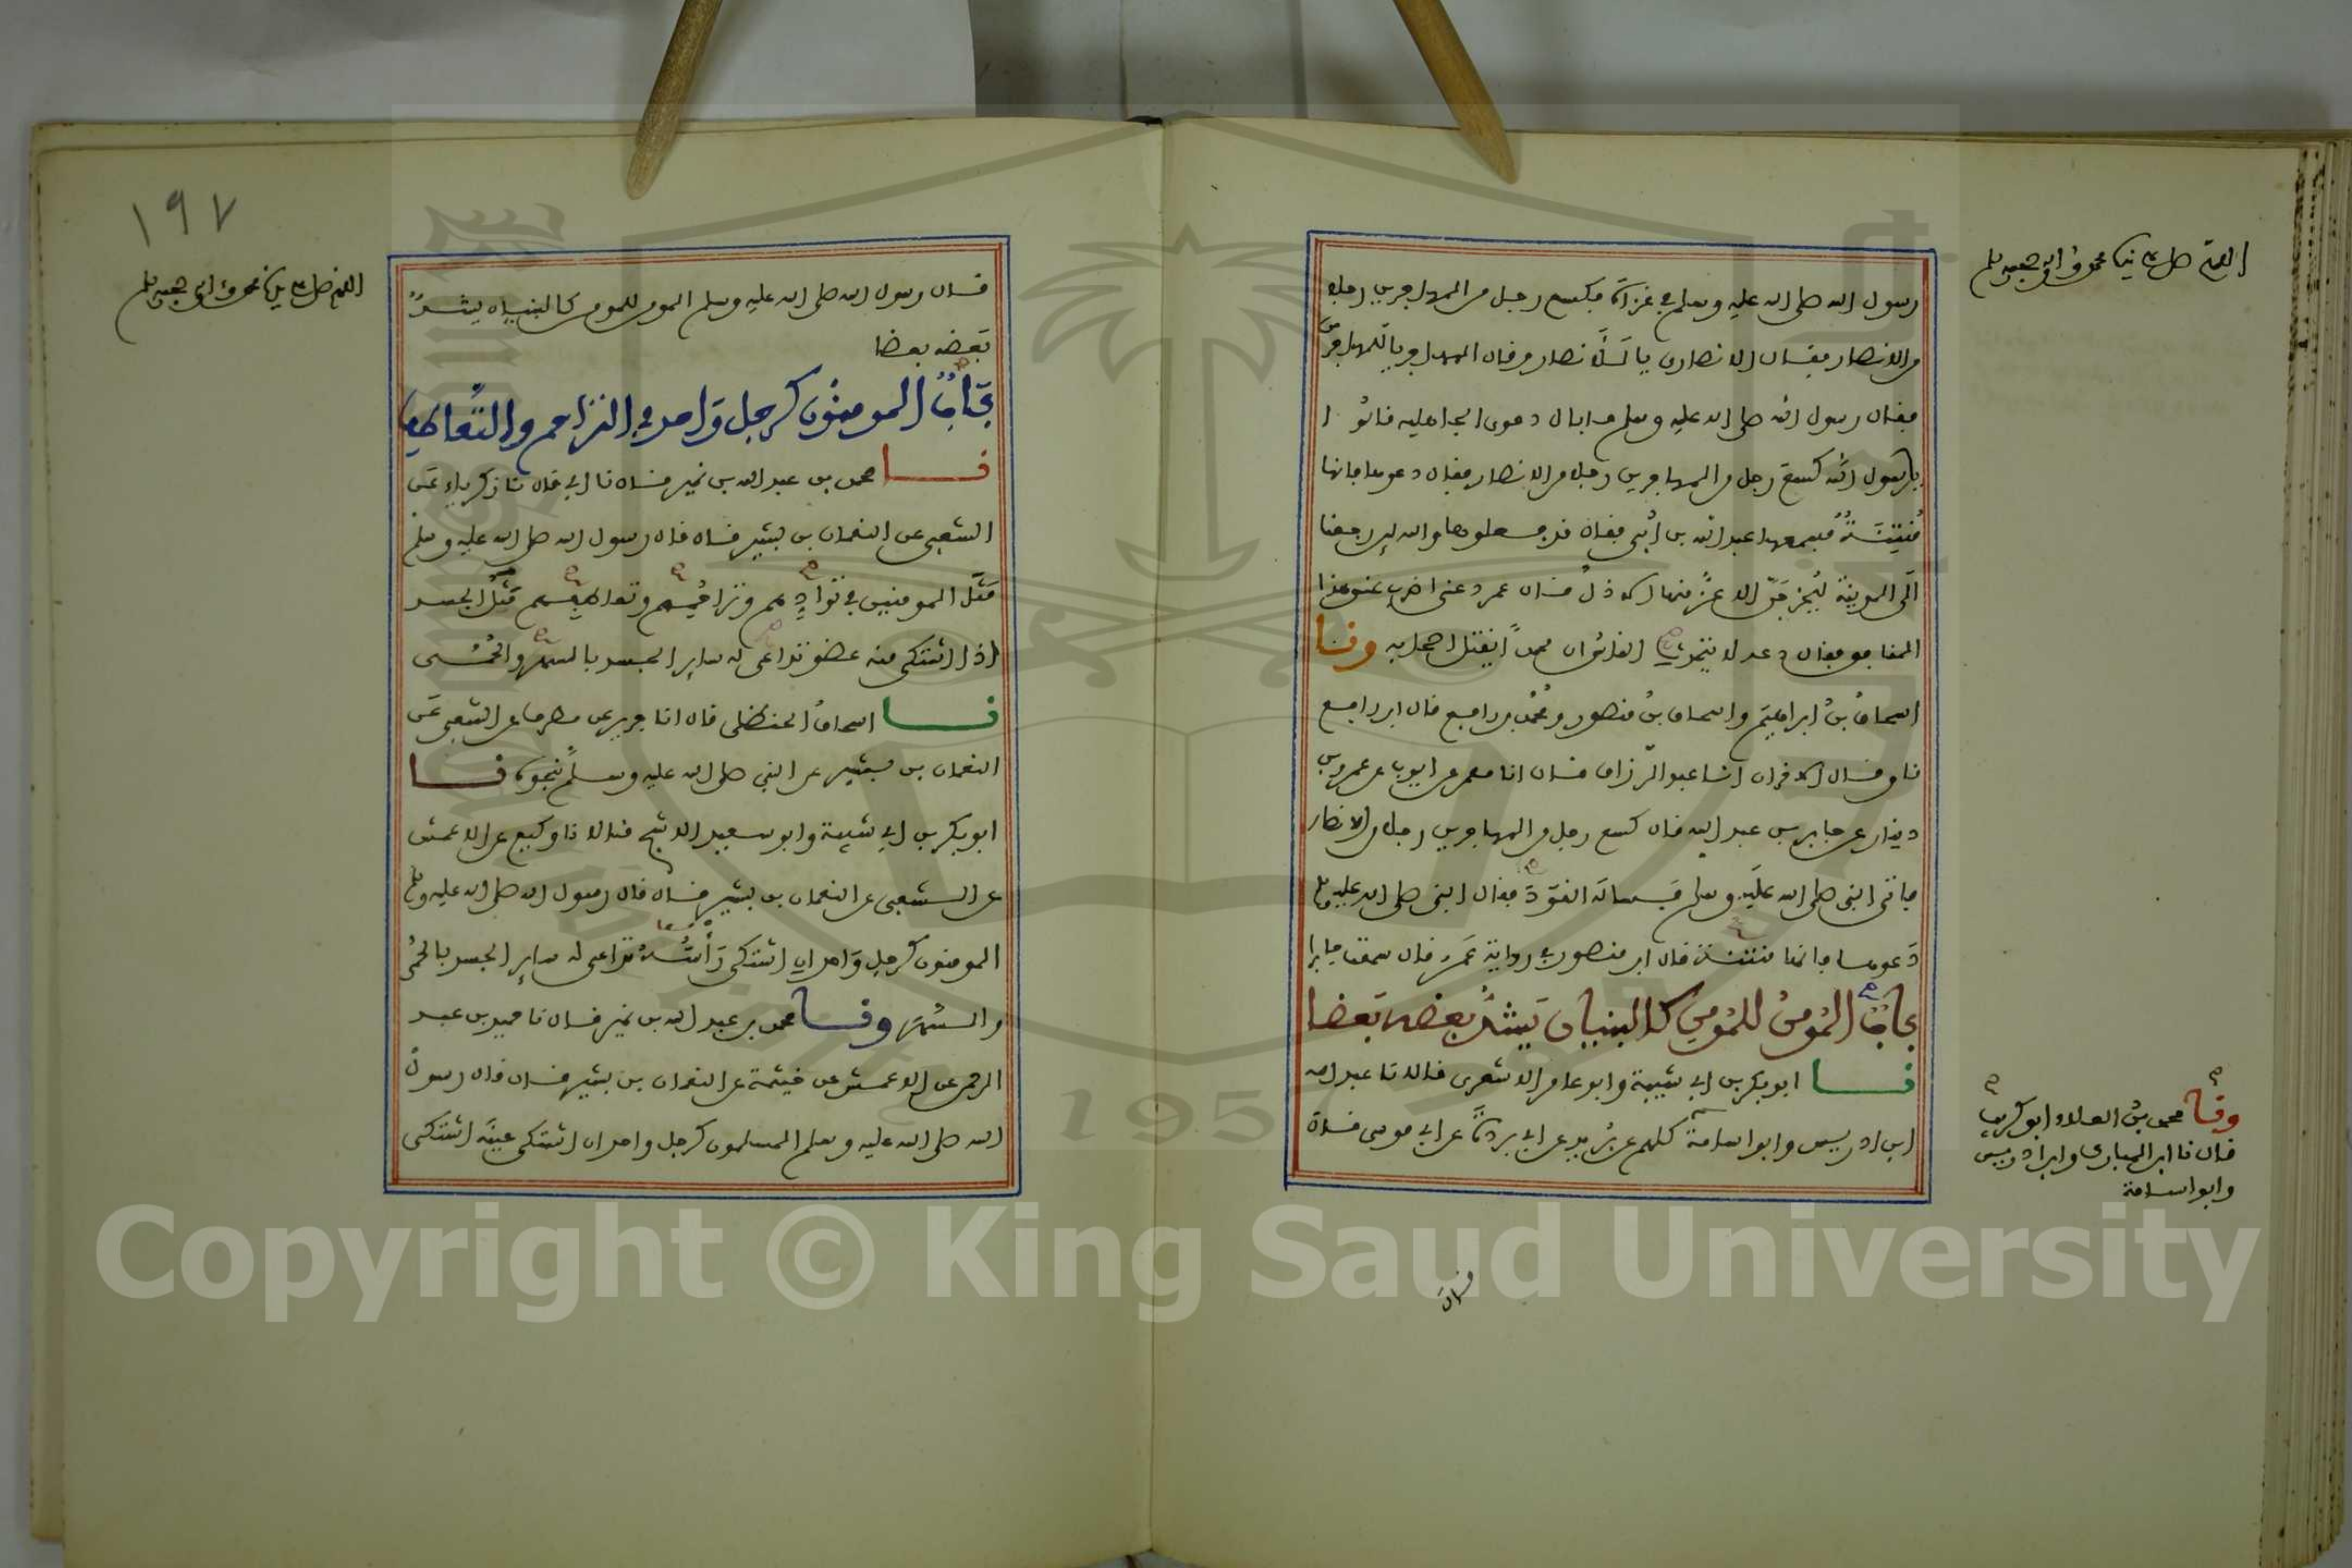 رسول الله صلى الله عليه وسلم في غزاة فكسع رجل من المهاجرين رجلا
من الانصار فقال الانصارى يا للأنصار وقال المهاجر يا للمهاجرين
فقال رسول الله صلى الله عليه وسلم ما بال دعوى الجاهلية قالوا
يا رسول الله كسع رجل من المهاجرين رجلا من الانصار فقال دعوها فانها
مُنتِنَة فسمعها عبد الله بن أبى فقال قد فعلوها والله لين رجعنا
الى المدينة ليخرجنّ الاعز منها الاذل قال عمر دعنى اضرب عنق هذا
المنافق فقال دعه لا يتحدث الناس ان محمدًا يقتل اصحابه ونا
اسحاق بن ابراهيم واسحاق بن منصور ومحمد بن رافع قال ابن رافع
نا وقال الاخران انا عبد الرزاق قال انا معمر عن ايوب عن عمرو بن
دينار عن جابر بن عبد الله قال كسع رجل من المهاجرين رجلا من الانصار
فاتى النبى صلى الله عليه وسلم فسأله القود فقال النبى صلى الله عليه وسلم
دعوها فانها منتنة قال ابن منصور في رواية عمرو قال سمعت جابرا
باب المؤمن للمؤمن كالبنيان يشد بعضه بعضا
نا ابو بكر بن ابي شيبة وابو عامر الاشعرى قالا نا عبد الله
ابن ادريس وابو اسامة كلهم عن بُريد عن ابي بردة عن ابي موسى قال
اللهم صل على نبينا محمد وآله وصحبه وسلم
ونا محمد بن العلاء ابو كريب
قال نا ابن المبارك وابن ادريس
وابو اسامة
قال
١٩٧
اللهم صل على نبينا محمد وآله وصحبه وسلم
قال رسول الله صلى الله عليه وسلم المومن للمومن كالبنيان يشدّ
بعضه بعضا
باب المومنون كرجل واحد في التراحم والتعاطف
نا محمد بن عبد الله بن نمير قال نا ابي قال نا زكرياء عن
الشعبى عن النعمان بن بشير قال قال رسول الله صلى الله عليه وسلم
مَثَل المومنين في توادهم وتراحمهم وتعاطفهم مثل الجسد
اذا اشتكى منه عضو تداعى له ساير الجسد بالسهر والحُمى
نا اسحاق الحنظلى قال انا جرير عن مطرف عن الشعبى عن
النعمان بن بشير عن النبى صلى الله عليه وسلم بنحوه نا
ابو بكر بن ابي شيبة وابو سعيد الاشج قالا نا وكيع عن الاعمش
عن الشعبى عن النعمان بن بشير قال قال رسول الله صلى الله عليه وسلم
المومنون كرجل واحد ان اشتكى رأسُه تداعى له ساير الجسد بالحُمى
والسهر ونا محمد بن عبد الله بن نمير قال نا حميد بن عبد
الرحمن عن الاعمش عن خيثمة عن النعمان بن بشير قال قال رسول
الله صلى الله عليه وسلم المسلمون كرجل واحد ان اشتكى عينه اشتكى
Copyright © King Saud University
195